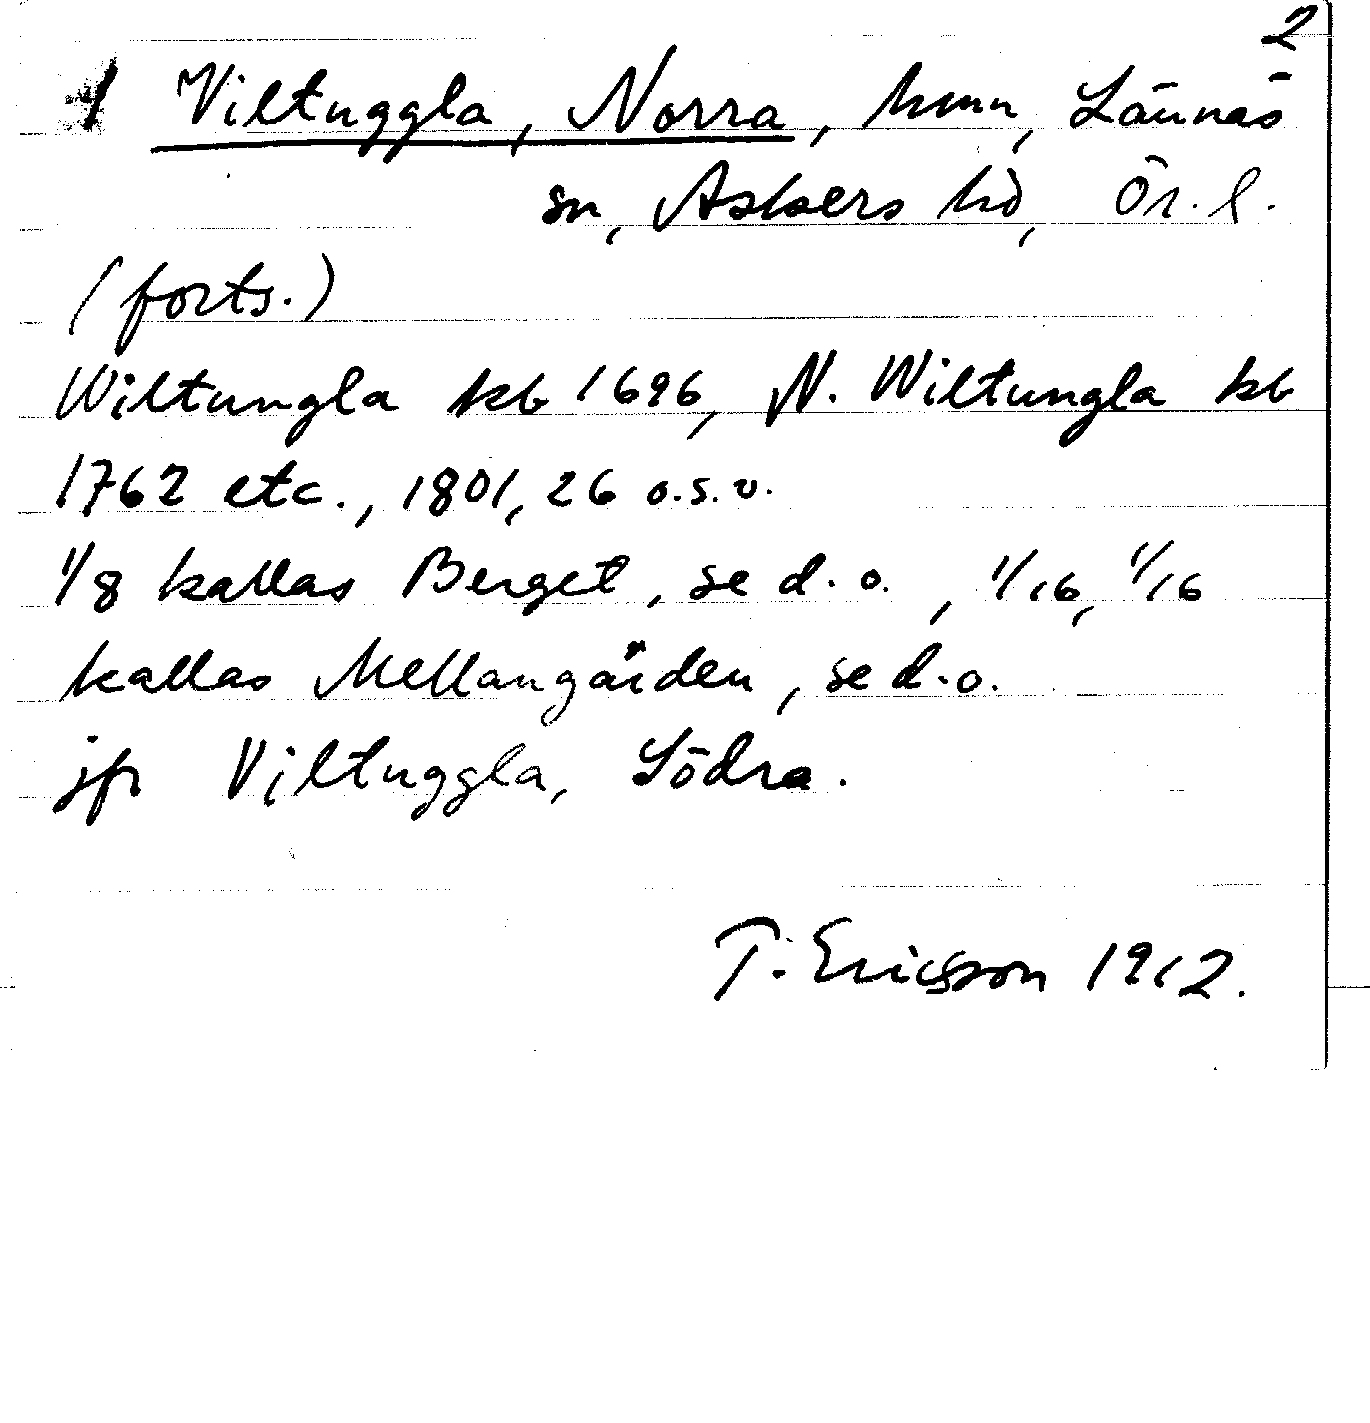 2
1 Viltuggla, Norra, hmn, Lännäs
sn, Askers hd, Ör. l.
(forts.)
Wiltungla kb 1696, N. Wiltungla kb
1762 etc., 1801, 26 o.s.v.
1/8 kallas Berget, se d.o., 1/16, 1/16
kallas Mellangården, se d.o.
jfr Viltuggla, Södra.
T. Ericsson 1912.